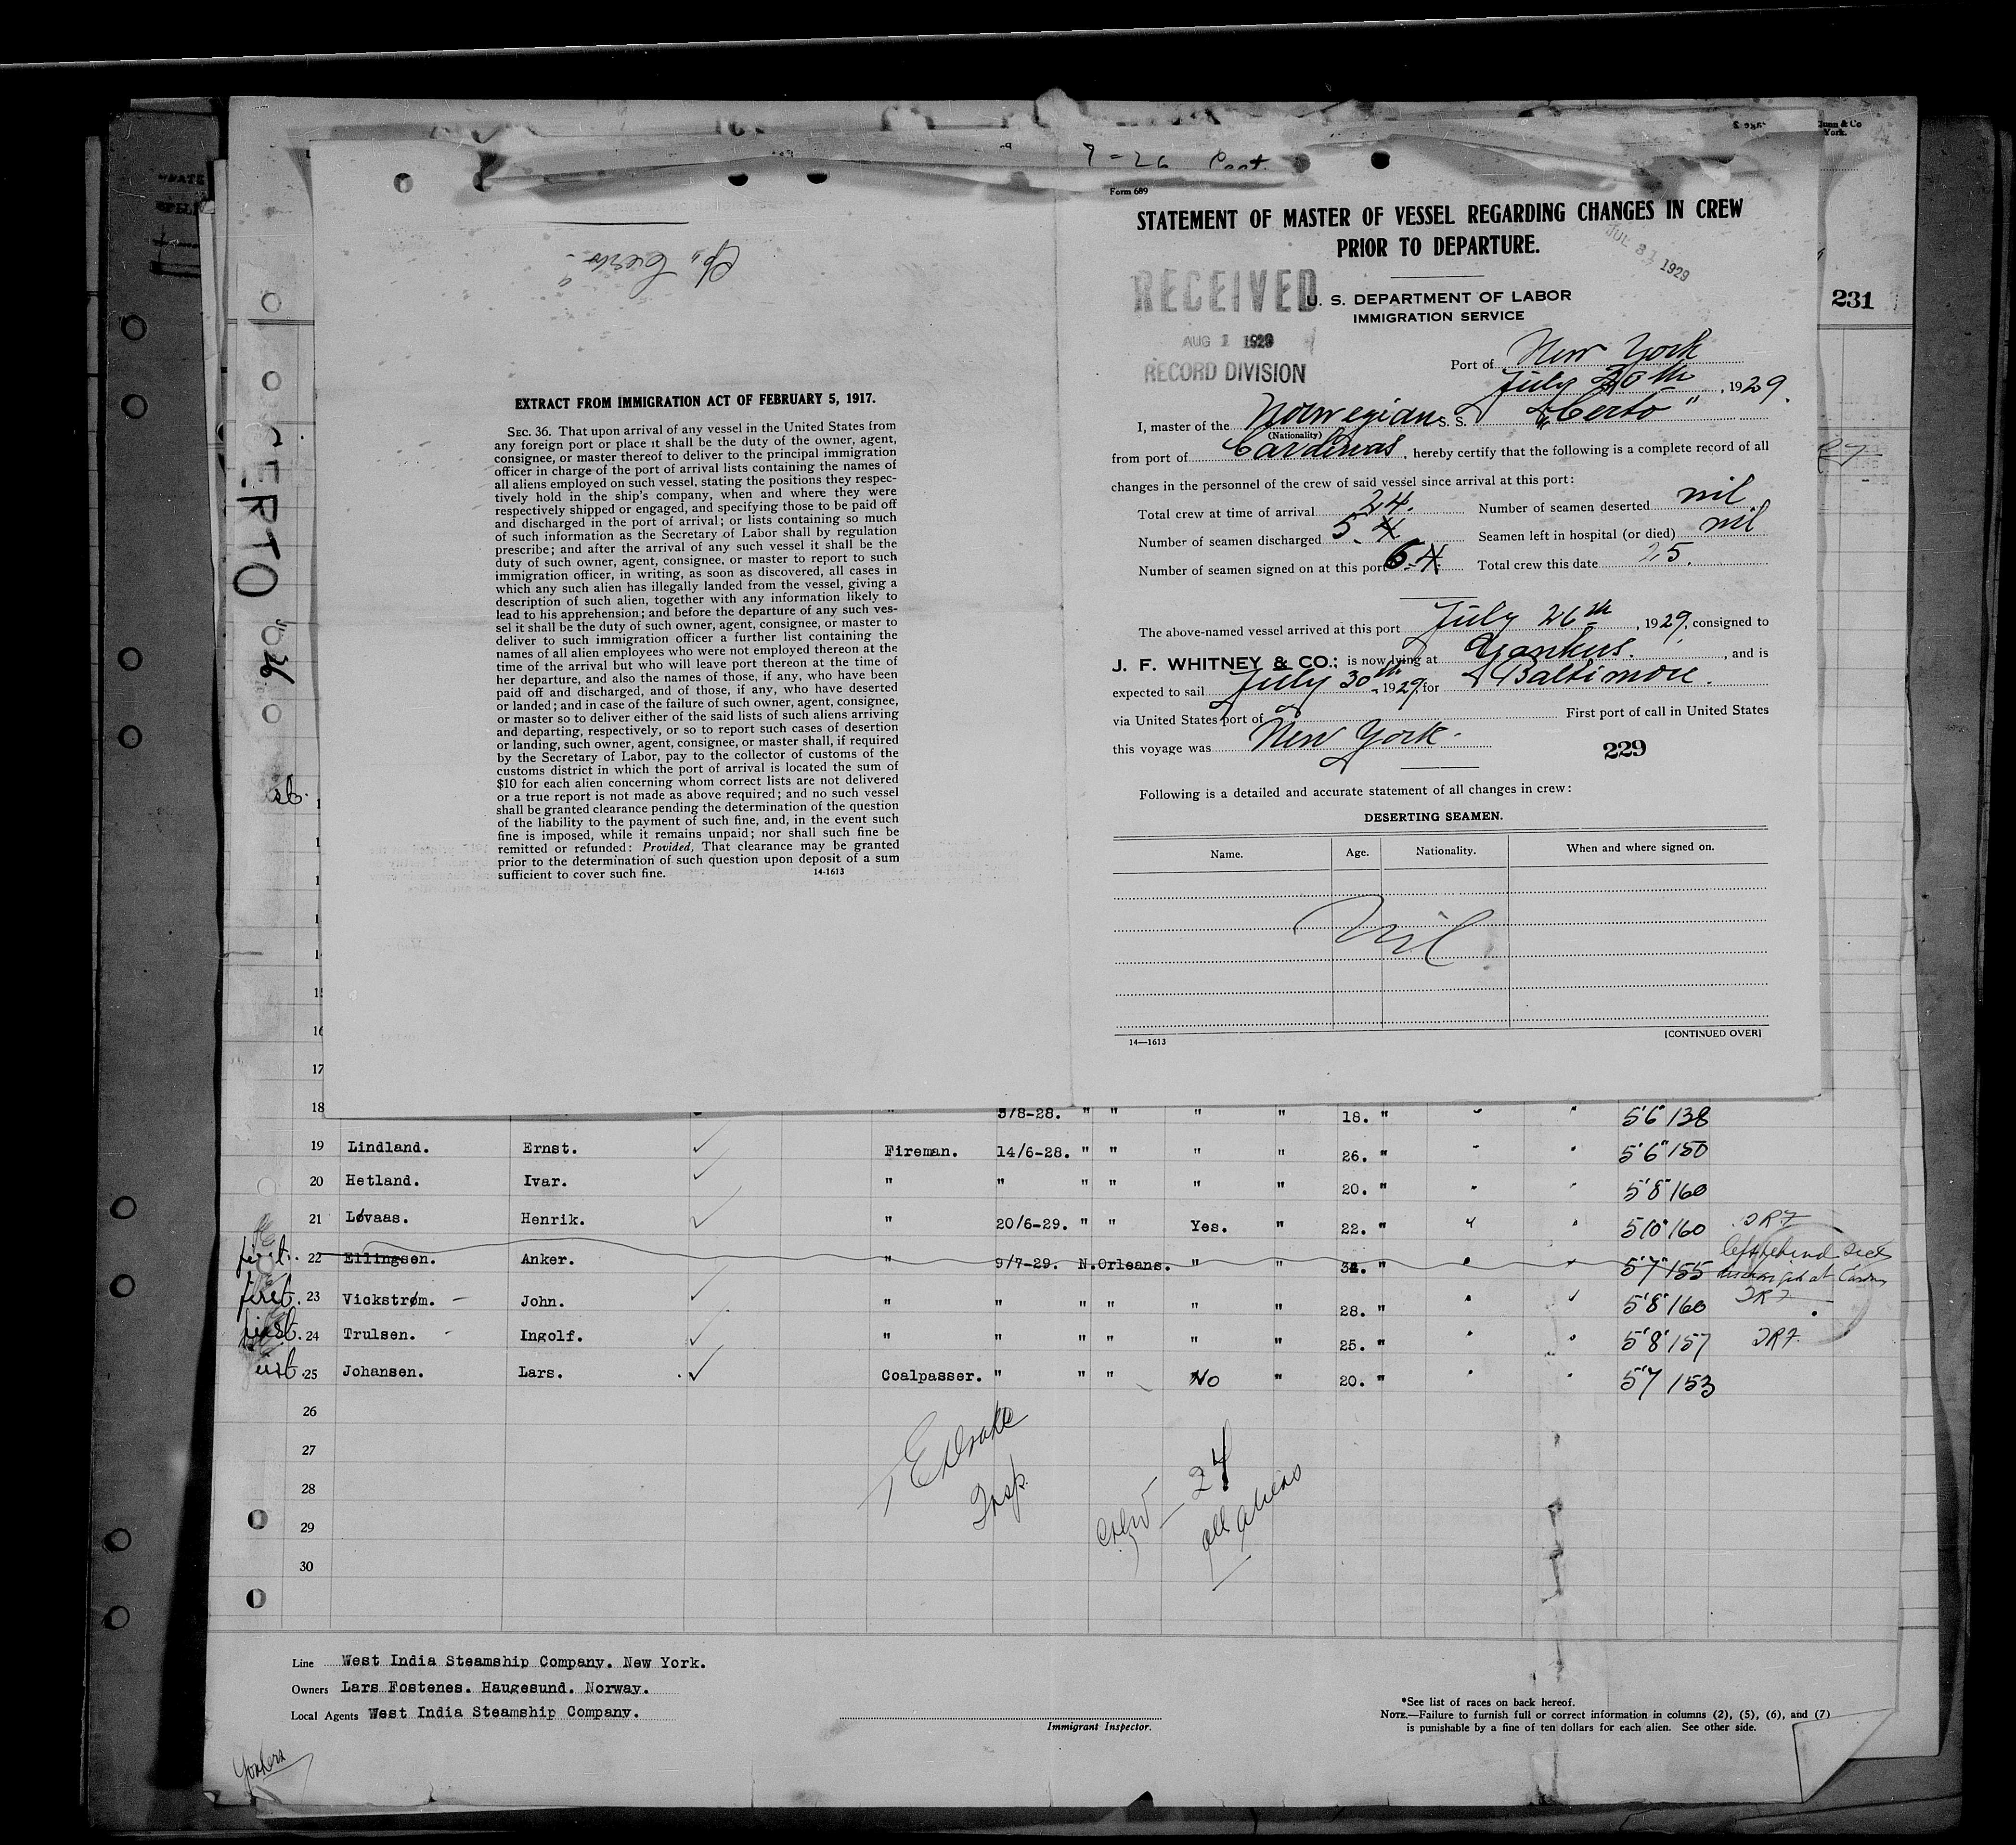 7-26 Part.
Form 689
STATEMENT OF MASTER OF VESSEL REGARDING CHANGES IN CREW
PRIOR TO DEPARTURE.
JUL 31 1929
RECEIVED
AUG 1 1929
RECORD DIVISION
U. S. DEPARTMENT OF LABOR
IMMIGRATION SERVICE
231
Port of New York
July 30th, 1929.
I, master of the Norwegian S. S. "Certo"
(Nationality)
from port of Cardenas, hereby certify that the following is a complete record of all
changes in the personnel of the crew of said vessel since arrival at this port:
Total crew at time of arrival 24. Number of seamen deserted nil
Number of seamen discharged 5. 4 Seamen left in hospital (or died) nil
Number of seamen signed on at this port 6. 4 Total crew this date 25.
The above-named vessel arrived at this port July 26th, 1929, consigned to
J. F. WHITNEY & CO.; is now lying at Yonkers., and is
expected to sail July 30th, 1929, for Baltimore.
via United States port of First port of call in United States
this voyage was New York.
229
Following is a detailed and accurate statement of all changes in crew:
DESERTING SEAMEN.
Name. Age. Nationality. When and where signed on.
Nil
14—1613 [CONTINUED OVER]
S/S "Certo"
EXTRACT FROM IMMIGRATION ACT OF FEBRUARY 5, 1917.
SEC. 36. That upon arrival of any vessel in the United States from
any foreign port or place it shall be the duty of the owner, agent,
consignee, or master thereof to deliver to the principal immigration
officer in charge of the port of arrival lists containing the names of
all aliens employed on such vessel, stating the positions they respec-
tively hold in the ship's company, when and where they were
respectively shipped or engaged, and specifying those to be paid off
and discharged in the port of arrival; or lists containing so much
of such information as the Secretary of Labor shall by regulation
prescribe; and after the arrival of any such vessel it shall be the
duty of such owner, agent, consignee, or master to report to such
immigration officer, in writing, as soon as discovered, all cases in
which any such alien has illegally landed from the vessel, giving a
description of such alien, together with any information likely to
lead to his apprehension; and before the departure of any such ves-
sel it shall be the duty of such owner, agent, consignee, or master to
deliver to such immigration officer a further list containing the
names of all alien employees who were not employed thereon at the
time of the arrival but who will leave port thereon at the time of
her departure, and also the names of those, if any, who have been
paid off and discharged, and of those, if any, who have deserted
or landed; and in case of the failure of such owner, agent, consignee,
or master so to deliver either of the said lists of such aliens arriving
and departing, respectively, or so to report such cases of desertion
or landing, such owner, agent, consignee, or master shall, if required
by the Secretary of Labor, pay to the collector of customs of the
customs district in which the port of arrival is located the sum of
$10 for each alien concerning whom correct lists are not delivered
or a true report is not made as above required; and no such vessel
shall be granted clearance pending the determination of the question
of the liability to the payment of such fine, and, in the event such
fine is imposed, while it remains unpaid; nor shall such fine be
remitted or refunded: Provided, That clearance may be granted
prior to the determination of such question upon deposit of a sum
sufficient to cover such fine.
14-1613
CERTO
17
18 5/8-28. " " " " 18. " " " 5'6" 138
19 Lindland. Ernst. Fireman. 14/6-28. " " " " 26. " " " 5'6" 150
20 Hetland. Ivar. " " " " " " 20. " " " 5'8" 160
21 Løvaas. Henrik. " 20/6-29. " " Yes. " 22. " " " 5'10" 160
first. 22 Ellingsen. Anker. " 9/7-29. N.Orleans. " " 34. " " " 5'7" 155 left behind
first. 23 Vickstrøm. John. " " " " " " 28. " " 5'8" 160
first. 24 Trulsen. Ingolf. " " " " " " 25. " " " 5'8" 157
25 Johansen. Lars. Coalpasser. " " " No " 20. " " " 5'7 153
26
27
28
29
30
E Drake
Insp.
Crew — 24
all aliens
Line West India Steamship Company. New York.
Owners Lars Fostenes. Haugesund. Norway.
Local Agents West India Steamship Company.
Immigrant Inspector.
*See list of races on back hereof.
NOTE.—Failure to furnish full or correct information in columns (2), (5), (6), and (7)
is punishable by a fine of ten dollars for each alien. See other side.
Yonkers